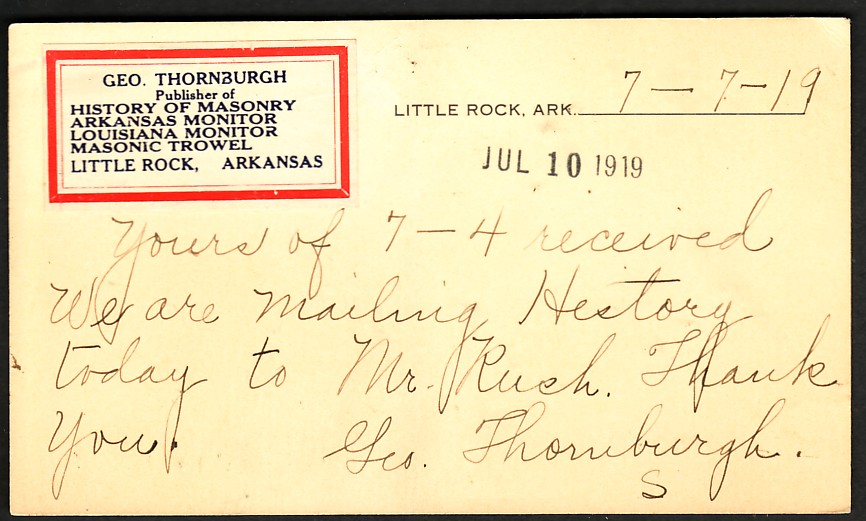 GEO. THORNBURGH
Publisher of
HISTORY OF MASONRY
ARKANSAS MONITOR
LOUISIANA MONITOR
MASONIC TROWEL
LITTLE ROCK, ARKANSAS
LITTLE ROCK, ARK. 7-7-19
JUL 10 1919
Yours of 7-4 received
We are mailing History
today to Mr. Rush. Thank
You.
Geo. Thornburgh.
S